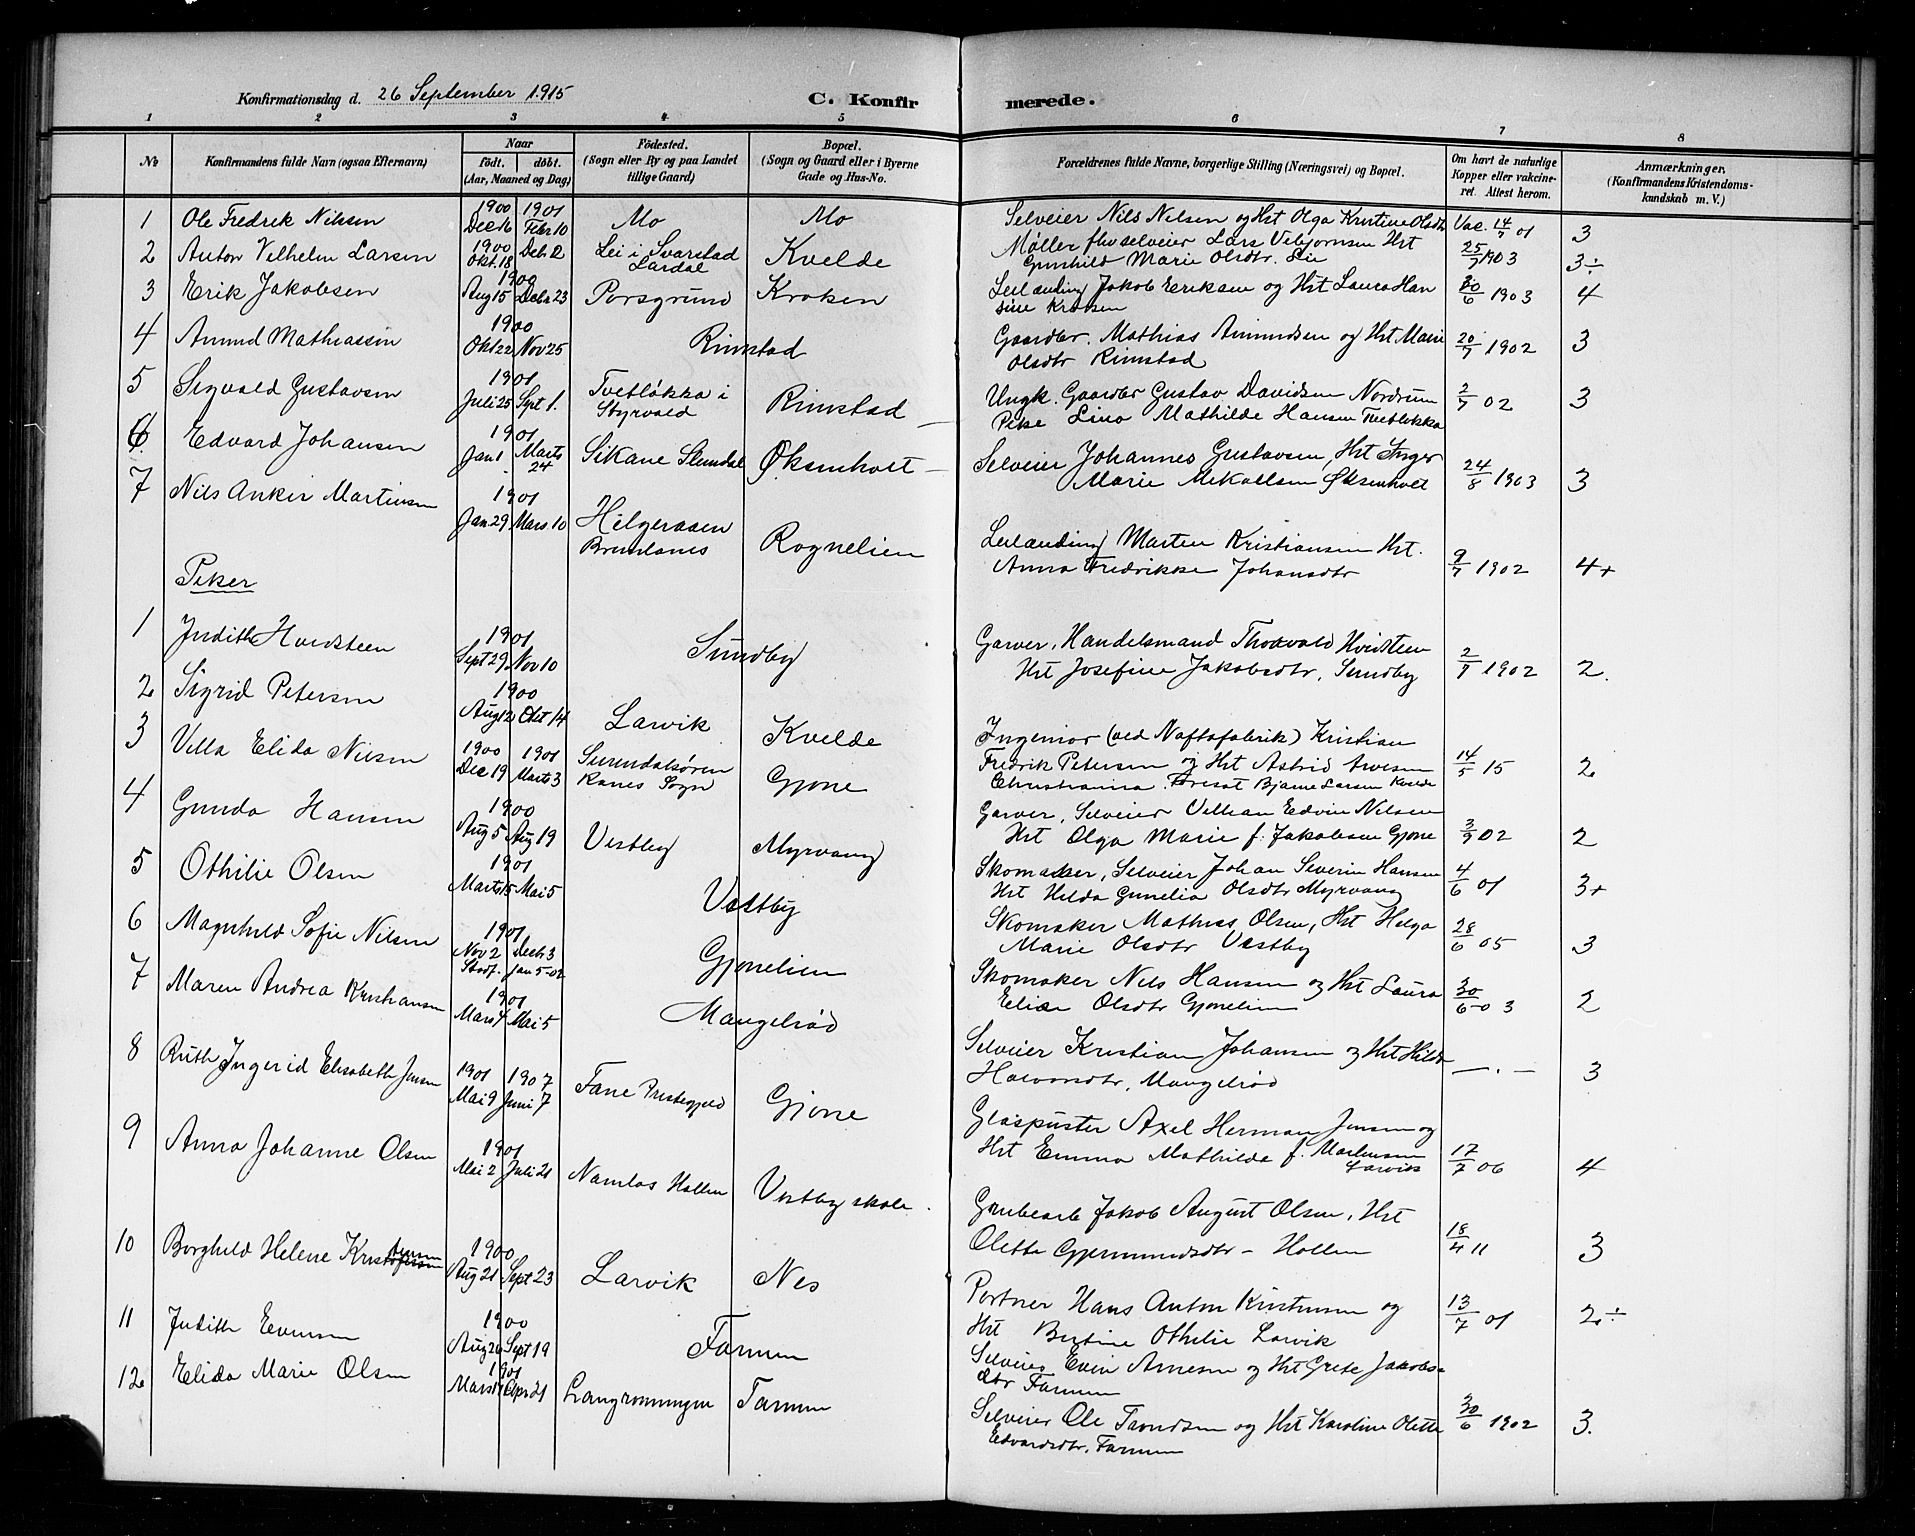 Konfirmationsdag d. 26 September 1915
C. Konfirmerede.
1 2 3 4 5 6 7 8
No
Konfirmandens fulde Navn (ogsaa Efternavn)
Naar
födt. döbt.
(Aar, Maaned og Dag)
Födested.
(Sogn eller By og paa Landet
tillige Gaard)
Bopæl.
(Sogn og Gaard eller i Byerne
Gade og Hus-No.
Forældrenes fulde Navne, borgerlige Stilling (Næringsvei) og Bopæl.
Om havt de naturlige
Kopper eller vakcine-
ret. Attest herom.
Anmærkninger.
(Konfirmandens Kristendoms-
kundskab m. V.)
1 Ole Fredrik Nilsen 1900 Dec 16 1901 Febr 10 Mo Mo Selveier Nils Nilsen og Hst Olga Kristine Olsdtr Vac. 14/7 01 3
2 Anton Vilhelm Larsen 1900 Okt. 18 Deb 2 Lei i Svarstad Kvelde Møller fhv selveier Lars Vebjørnsen Hst 25/7 1903 3÷
Lardal Gunhild Marie Olsdtr. Lie
3 Erik Jakobsen 1900 Aug 15 Debr 23 Porsgrund Kroken Leilænding Jakob Eriksen og Hst Laura Han 30/6 1903 4
sine Kroken
4 Amund Mathiassen 1900 Okt 22 Nov 25 Rimstad Gaardbr. Mathias Amundsen og Hst Marie 20/7 1902 3
Olsdtr Rimstad
5 Sigvald Gustavsen 1901 Juli 25 Sept 1. Tvetløkka i Rimstad Ungk. Gaardbr Gustav Davidsen Nordrum 2/7 02 3
Styrvold Pike Lina Mathilde Hansen Tvetløkka
6. Edvard Johansen 1901 Jan 1 Marts 24 Sikane Slemdal Øksenholt Selveier Johannes Gustavsen, Hst Inger 24/8 1903 3
Marie Mekalsen Øksenholt
7 Nils Anker Martinsen 1901 Jan 29 Mars 10 Helgeraaen Rognelien Leilænding Martin Kristiansen Hst. 9/7 1902 4+
Brunlanes Anna Fredrikke Johansdtr
Piker
1 Judith Hvidsteen 1901 Sept 29 Nov 10 Sundby Garver, Handelsmand Thorvald Hvidsteen 2/9 1902 2.
Hst Josefine Jakobsdtr, Sundby
2 Sigrid Petersen 1900 Aug 12 Okt 14 Larvik Kvelde Ingeniør (ved Naftafabrik) Kristian 14/5 15 2
Fredrik Petersen og Hst Astrid Arvesen
Christiania. Foresat Bjarne Larsen Kvelde
3 Villa Elida Nilsen 1900 Dec 19 1901 Marts 3 Surendalsøren Gjone Garver, Selveier Vilhan Edvin Nilsen 3/9 02 2
Ranes Sogn Hst Olga Marie f. Jakobsen Gjone
4 Gunda Hansen 1900 Aug 5 Aug 19 Vestby Myrvang Skomaker, Selveier Johan Severin Hansen 4/6 01 3+
Hst Hilda Gunelia Olsdtr Myrvang
5 Othilie Olsen 1901 Marts 15 Mai 5 Vestby Skomaker Mathias Olsen, Hst Helga 28/6 05 3
Marie Olsdtr Vestby
6 Magnhild Sofie Nilsen 1901 Nov 2 Decb 3 Gjonelien Skomaker Nils Hansen og Hst Laura 30/6 03 2
Stadf. Jan 5-02 Elise Olsdtr Gjonelien
7 Maren Andrea Kristiansen 1901 Mars 4 Mai 5 Mangelrød Selveier Kristian Johansen og Hst Hilda —.— 3
Halvorsdtr, Mangelrød
8 Ruth Ingerid Elisabeth Jensen 1901 Mai 9 1907 Juni 7 Fane Prestegjeld Gjone Glaspuster Axel Herman Jensen og 17/7 06 4
Hst Emma Mathilde f. Martinsen
Larvik
9 Anna Johanne Olsen 1901 Mai 2 Juli 21 Namløs Hollen Vestby skole. Grubearb Jakob August Olsen, Hst 18/4 11 3
Olette Gjermundsdtr – Hollen
10 Borghild Helene Kristofersen 1900 Aug 21 Sept 23 Larvik Nes Portner Hans Anton Kristensen og 13/7 01 2÷
Hst Bertine Othilie Larvik
11 Judith Evensen 1900 Aug 26 Sept 19 Farmen Selveier Even Arnesen og Hst Grete Jakobs-
dtr Farmen
12 Elida Marie Olsen 1901 Mars 17 Apr 21 Langrønningen Farmen Selveier Ole Trondsen og Hst Karoline Olette 30/6 1902 3.
Edvardsdtr. Farmen